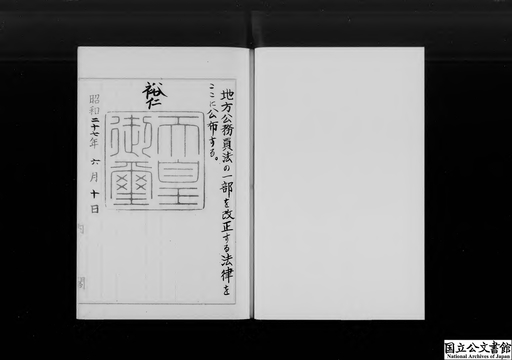 地方公務員法の一部を改正する法律を
ここに公布する。
裕仁
天皇
御璽
昭和二十七年六月十日
内閣
国立公文書館
National Archives of Japan